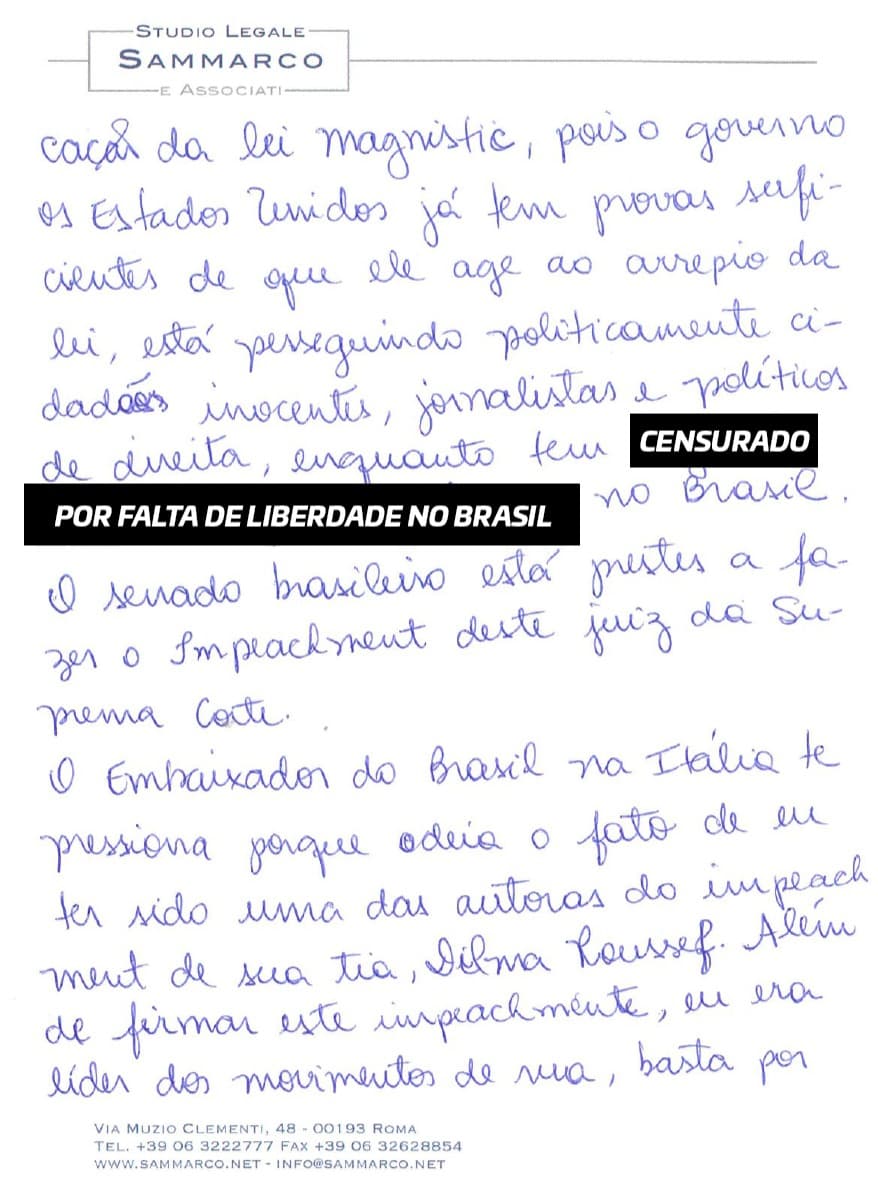 STUDIO LEGALE
SAMMARCO
E ASSOCIATI
cação da lei magnistic, pois o governo
os Estados Unidos já tem provas sufi-
cientes de que ele age ao arrepio da
lei, está perseguindo politicamente ci-
dadãos inocentes, jornalistas e políticos
de direita, enquanto tem CENSURADO
POR FALTA DE LIBERDADE NO BRASIL no Brasil.
O senado brasileiro está prestes a fa-
zer o Impeachment deste juiz da Su-
prema Corte.
O Embaixador do Brasil na Itália te
pressiona porque odeia o fato de eu
ter sido uma das autoras do impeach
ment de sua tia, Dilma Roussef. Além
de firmar este impeachmente, eu era
líder dos movimentos de rua, basta por
VIA MUZIO CLEMENTI, 48 - 00193 ROMA
TEL. +39 06 3222777 FAX +39 06 32628854
WWW.SAMMARCO.NET - INFO@SAMMARCO.NET